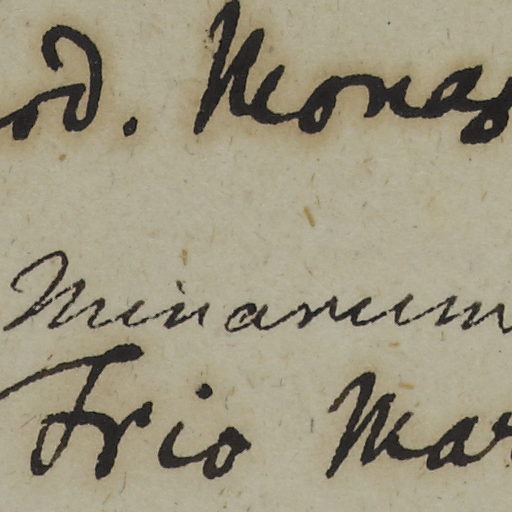 od. Monas
Minarum
Frio Mar